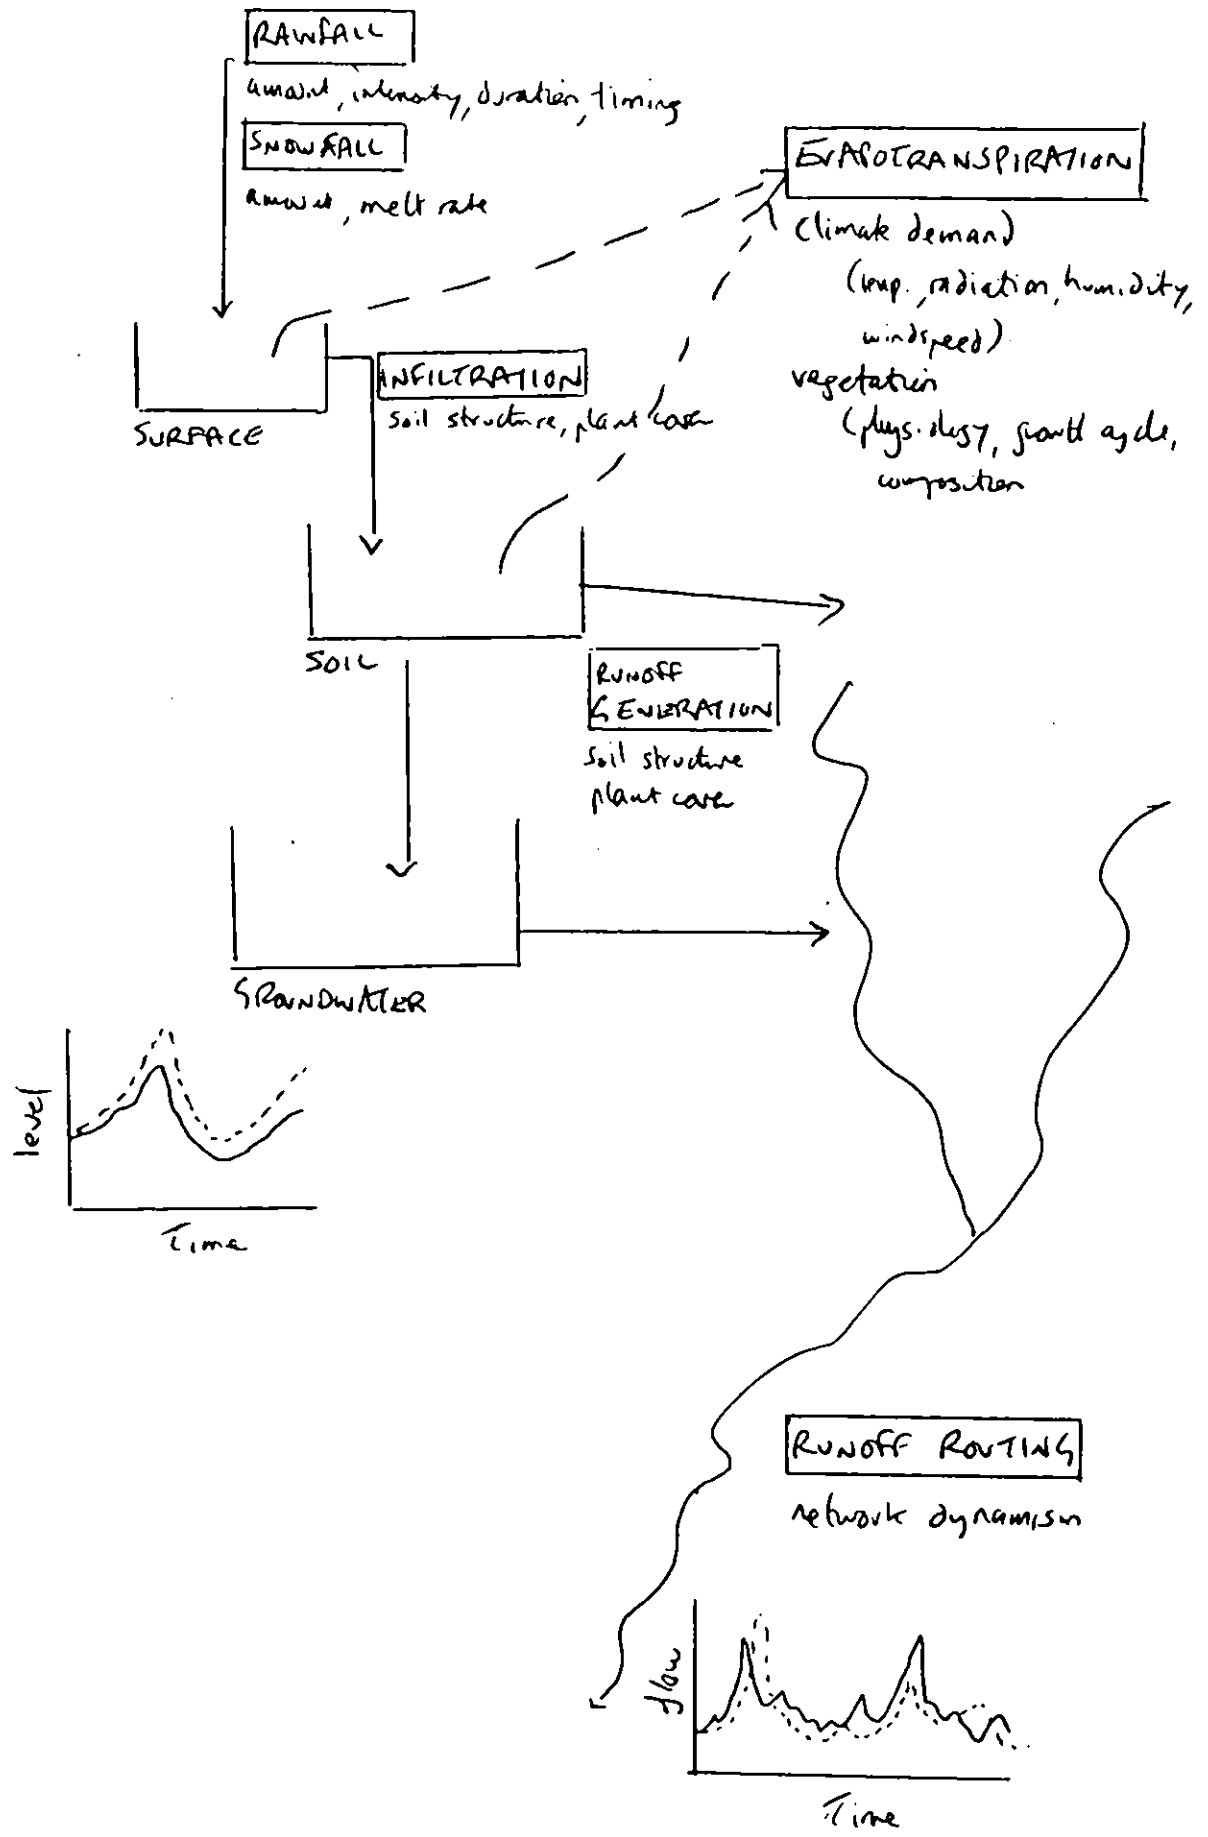 RAINFALL
amount, intensity, duration, timing
SNOWFALL
amount, melt rate
EVAPOTRANSPIRATION
climate demand
(temp., radiation, humidity,
windspeed)
vegetation
(physiology, growth cycle,
composition
SURFACE
INFILTRATION
soil structure, plant cover
SOIL
RUNOFF
GENERATION
soil structure
plant cover
GROUNDWATER
level
Time
RUNOFF ROUTING
network dynamism
flow
Time